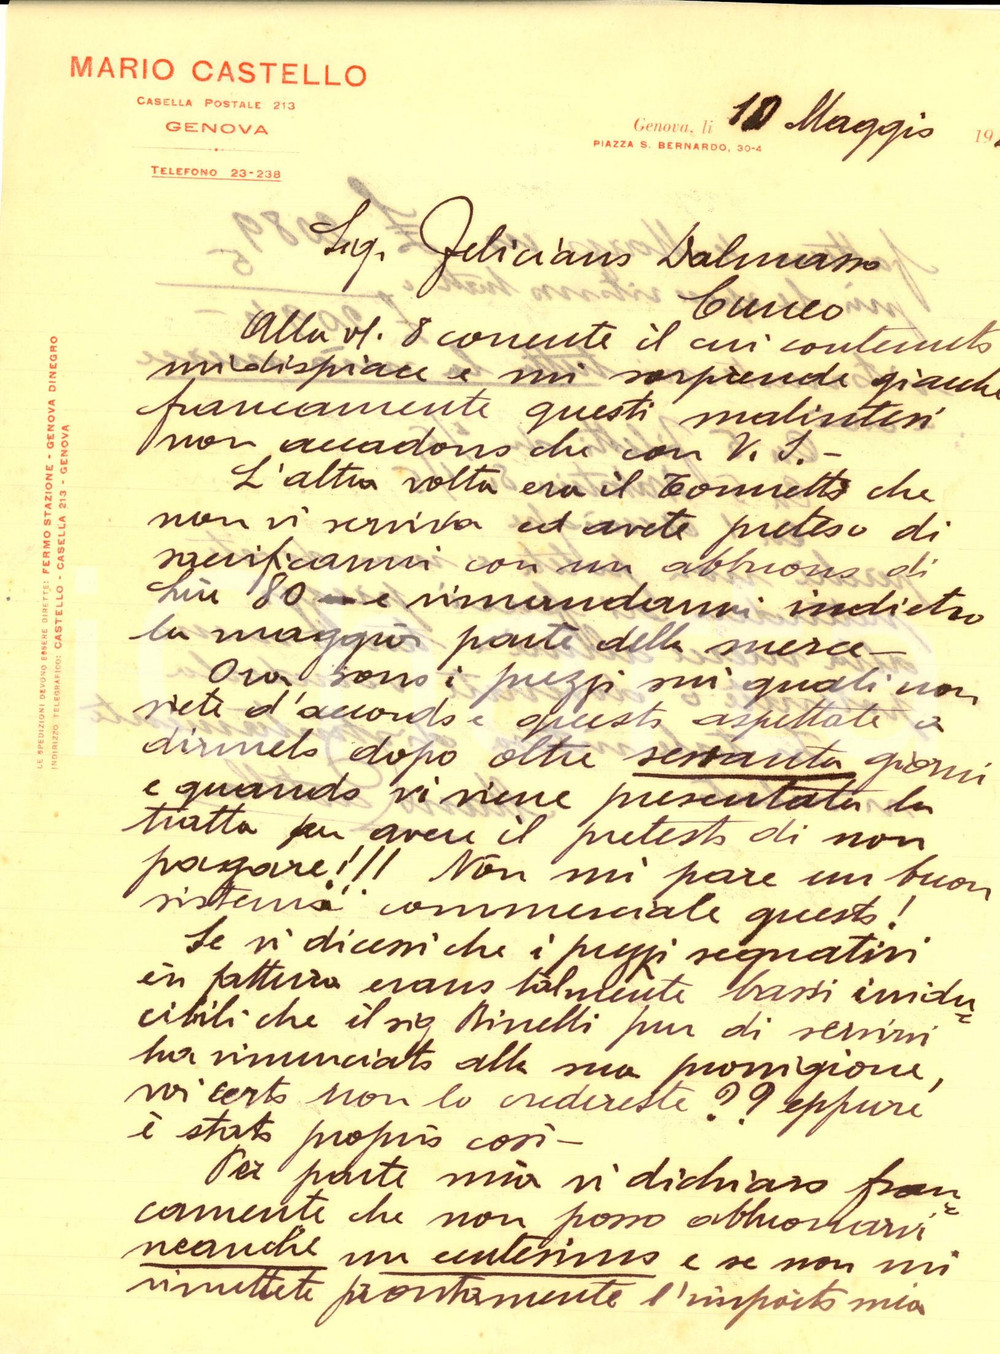 MARIO CASTELLO
CASELLA POSTALE 213
GENOVA
TELEFONO 23-238
Genova, li 10 Maggio 19
PIAZZA S. BERNARDO, 30-4
LE SPEDIZIONI DEVONO ESSERE DIRETTE: FERMO STAZIONE - GENOVA DINEGRO
INDIRIZZO TELEGRAFICO: CASTELLO - CASELLA 213 - GENOVA
Sig. Feliciano Dalmasso
Cuneo
Alla vs. 8 corrente il cui contenuto
mi dispiace e mi sorprende giacchè
francamente questi malintesi
non accadono che con V. S. -
L'altra volta era il Tonnetto che
non vi serviva ed avete preteso di
sacrificarmi con un abbuono di
Lire 80 - e rimandarmi indietro
la maggior parte della merce -
Ora sono i prezzi sui quali non
siete d'accordo e questo aspettate a
dirmelo dopo oltre sessanta giorni
e quando vi viene presentata la
tratta per avere il pretesto di non
pagare!!! Non mi pare un buon
sistema commerciale questo!
Se vi dicessi che i prezzi segnativi
in fattura erano talmente bassi irridu=
cibili che il sig Binelli pur di servirvi
ha rinunciato alla sua provvigione,
voi certo non lo credereste ?? eppure
è stato proprio così -
Per parte mia vi dichiaro fran=
camente che non posso abbuonarvi
neanche un centesimo e se non mi
rimettete prontamente l'importo mia